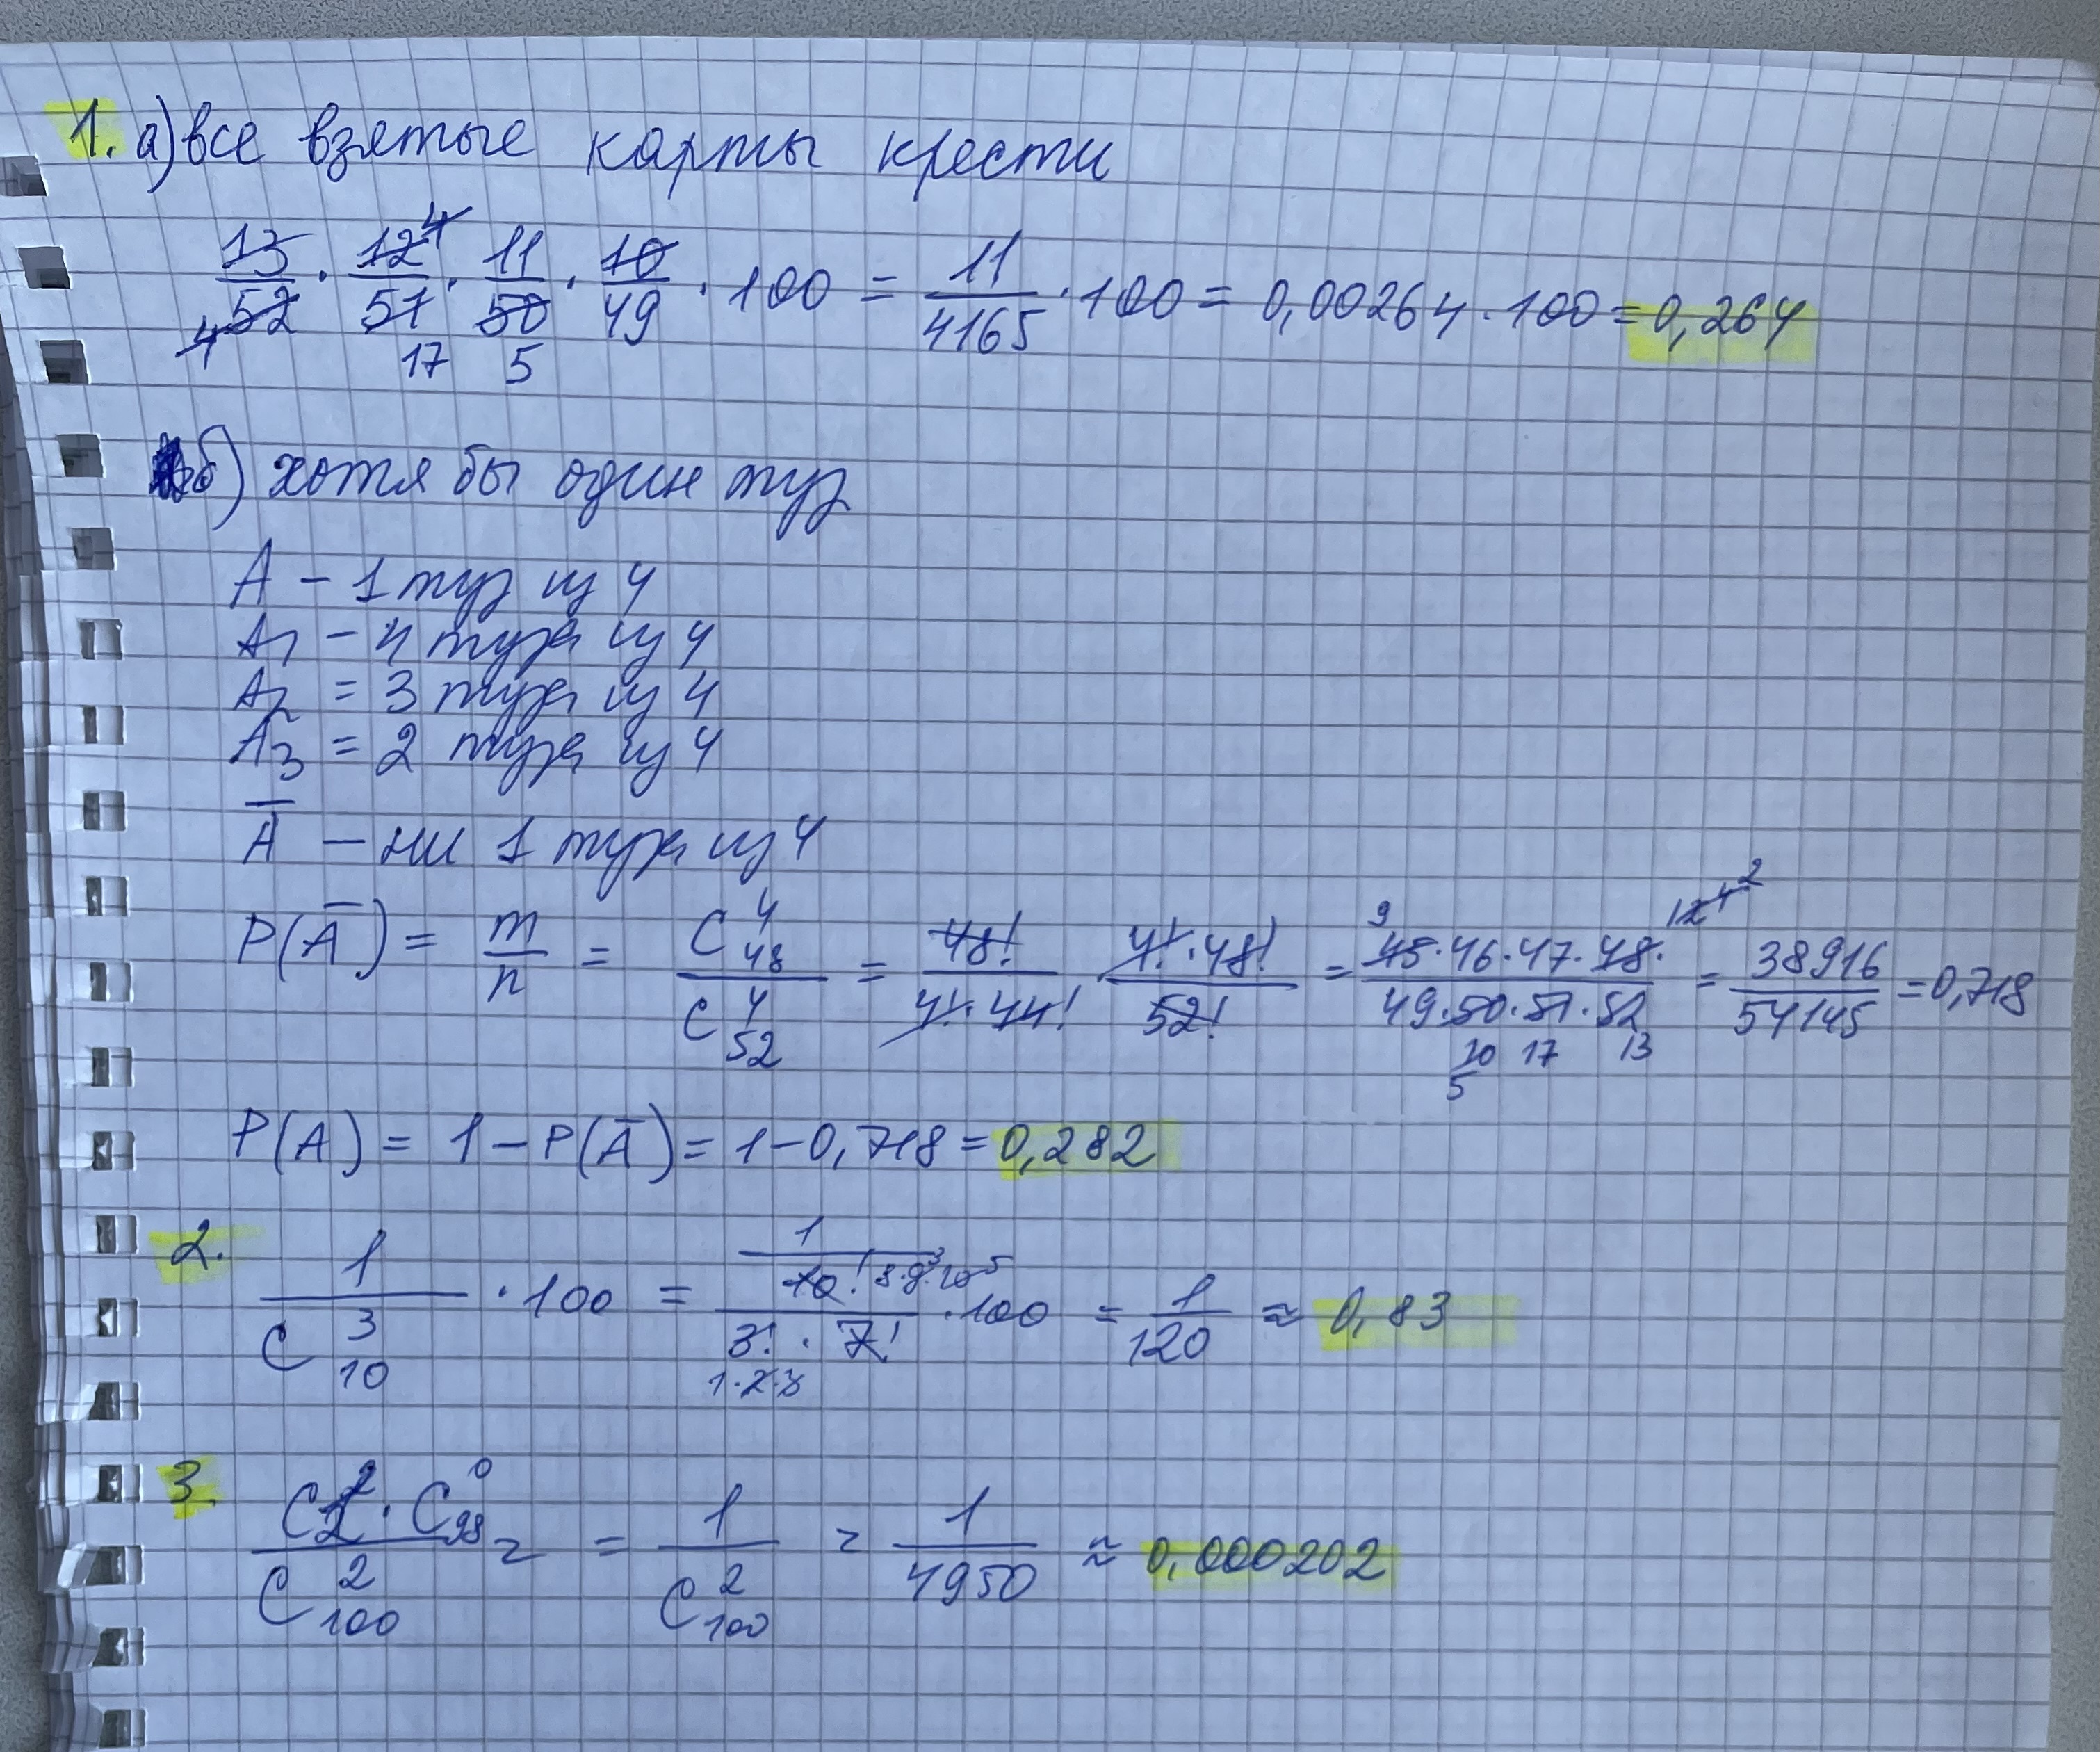 1. а) все взятые карты крести
13/52 · 12/51 · 11/50 · 10/49 · 100 = 11/4165 · 100 = 0,00264 · 100 = 0,264
4 4 17 5
б) хотя бы один туз
A – 1 туз из 4
A1 – 4 туза из 4
A2 = 3 туза из 4
A3 = 2 туза из 4
A̅ – ни 1 туза из 4
P(A̅) = m/n = C⁴₄₈/C⁴₅₂ = 48!/(4!·44!) · (4!·48!)/52! = (45·46·47·48)/(49·50·51·52) = 38916/54145 = 0,718
9 12 4 2
10 17 13
5
P(A) = 1 – P(A̅) = 1 – 0,718 = 0,282
2. 1/C³₁₀ · 100 = 1/(10!/(3!·7!)) · 100 = 1/120 ≈ 0,83
8·9³·10⁵
1·2·3
3. (C²₂ · C⁰₉₈)/C²₁₀₀ = 1/C²₁₀₀ = 1/4950 ≈ 0,000202